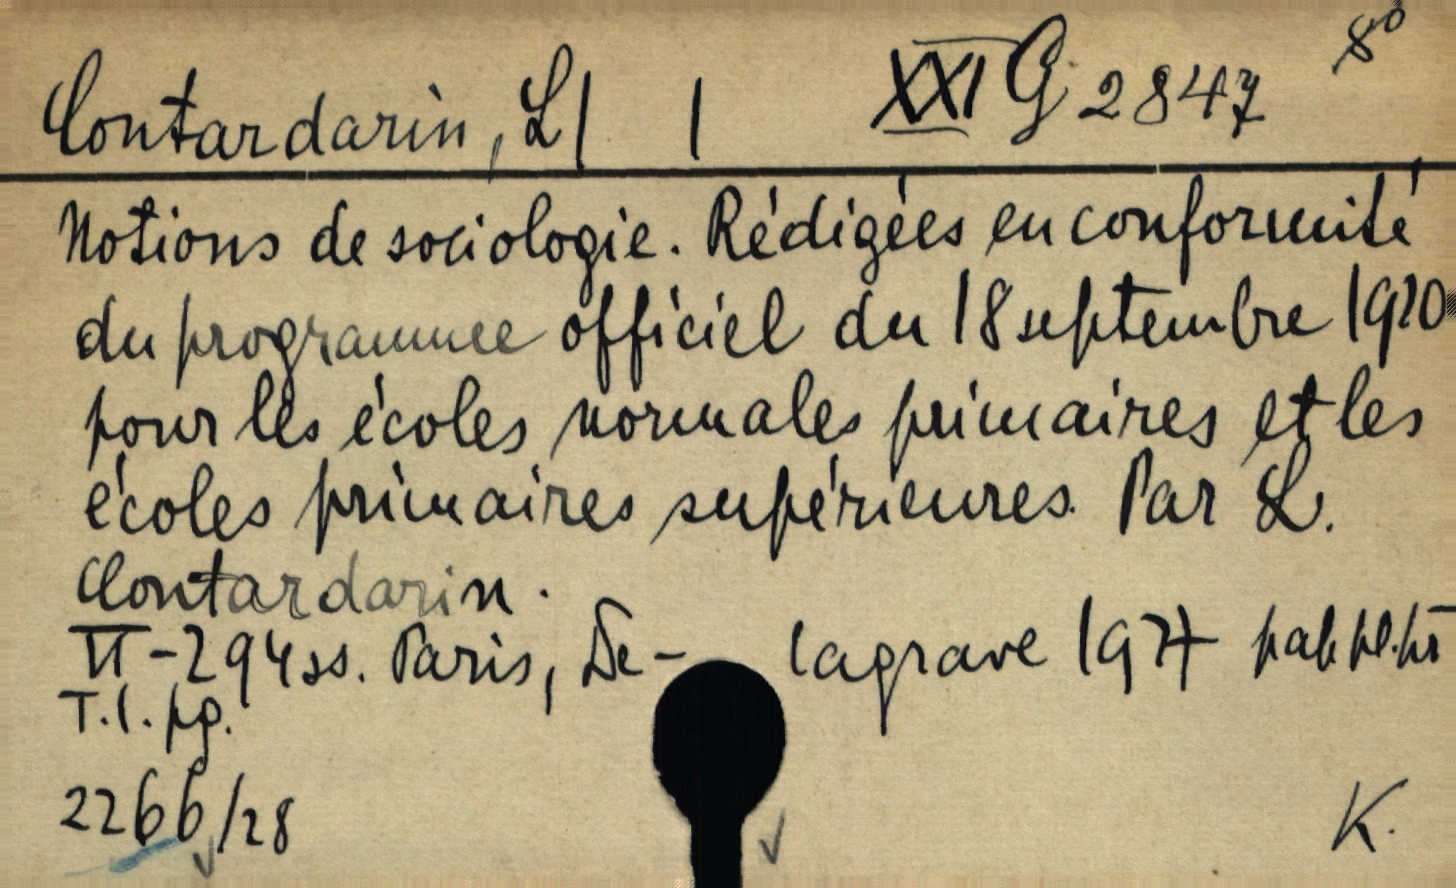 Contardarin, L| | XXI G 2847 8°
Notions de sociologie. Rédigées en conformité
du programme officiel du 18 septembre 1920
pour les écoles normales primaires et les
écoles primaires supérieures. Par L.
Contardarin.
II-294 ss. Paris, De- lagrave 1927
T.l. pg.
2266/28
K.